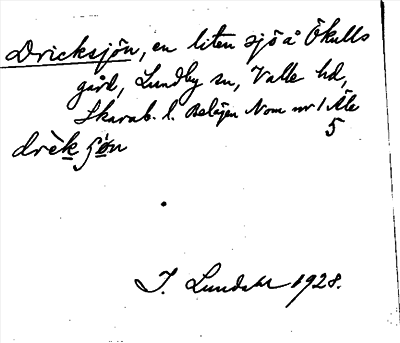 Dricksjön, en liten sjö å Ökulls
gård, Lundby sn, Valle hd,
Skarab. l. Belägen Nom nr 1 Åle
5
drèk ʃǿn
J. Lundahl 1928.